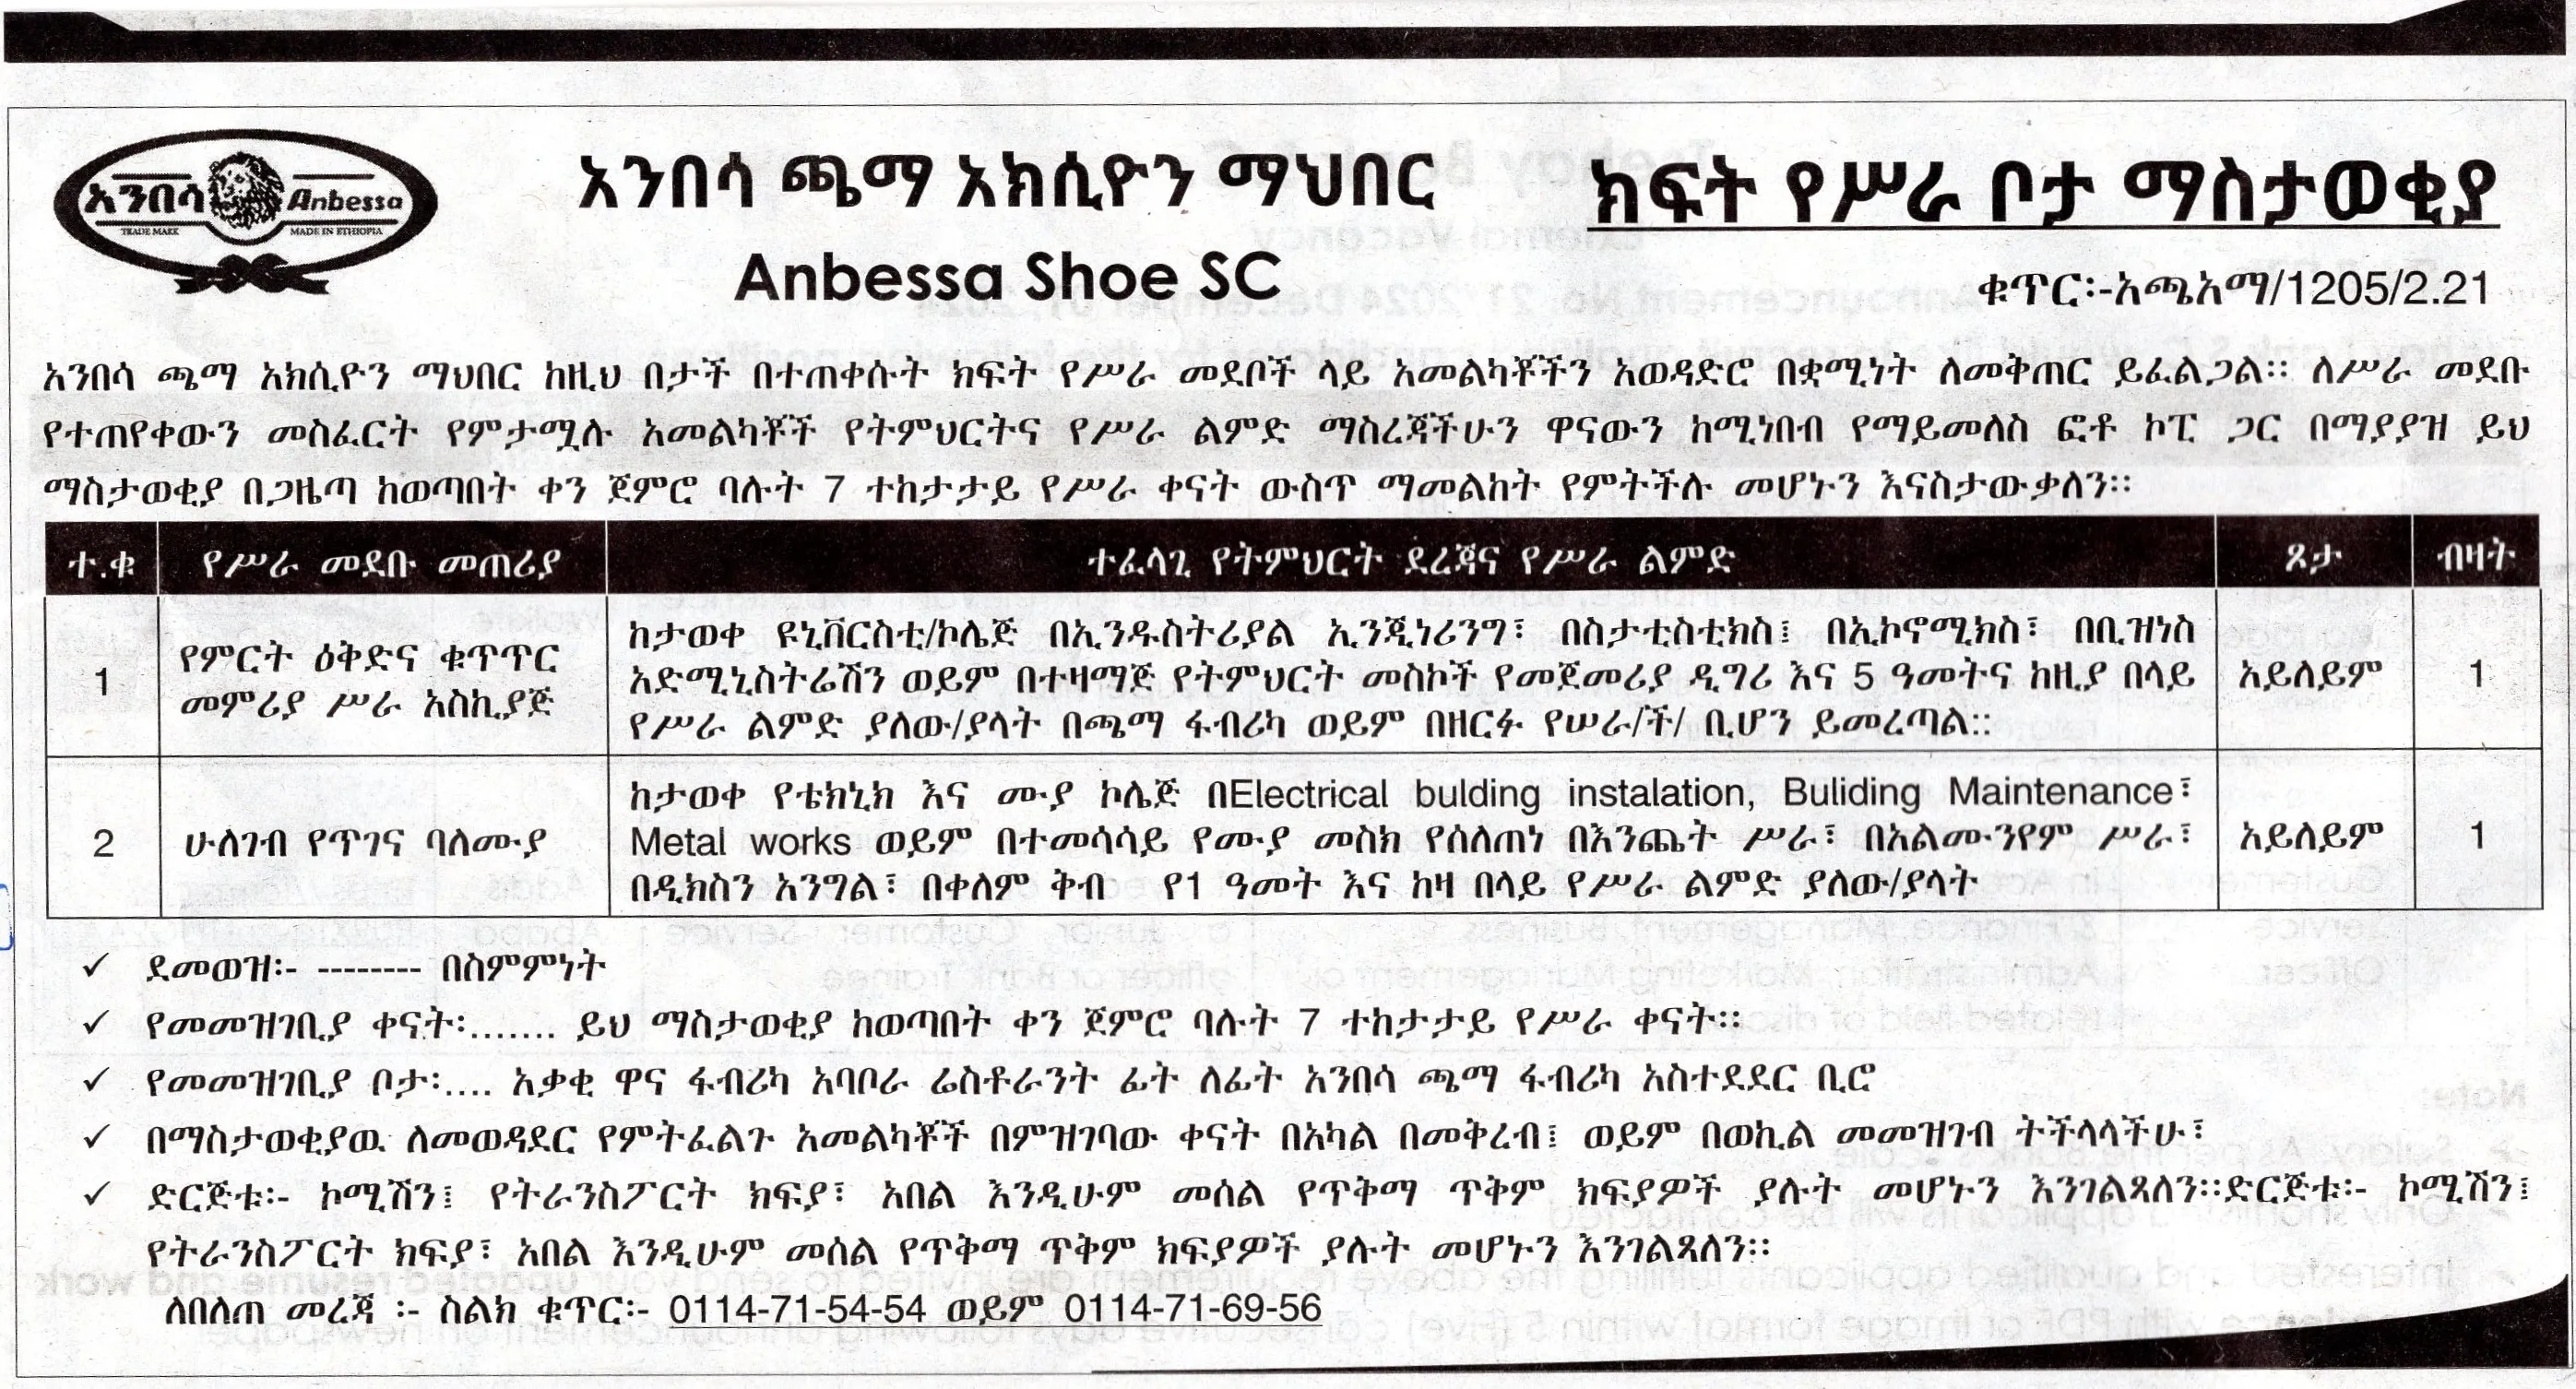 አንበሳ Anbessa
TRADE MARK MADE IN ETHIOPIA
አንበሳ ጫማ አክሲዮን ማህበር
Anbessa Shoe SC
ክፍት የሥራ ቦታ ማስታወቂያ
ቁጥር፡-አጫአማ/1205/2.21
አንበሳ ጫማ አክሲዮን ማህበር ከዚህ በታች በተጠቀሱት ክፍት የሥራ መደቦች ላይ አመልካቾችን አወዳድሮ በቋሚነት ለመቅጠር ይፈልጋል፡፡ ለሥራ መደቡ
የተጠየቀውን መስፈርት የምታሟሉ አመልካቾች የትምህርትና የሥራ ልምድ ማስረጃችሁን ዋናውን ከሚነበብ የማይመለስ ፎቶ ኮፒ ጋር በማያያዝ ይህ
ማስታወቂያ በጋዜጣ ከወጣበት ቀን ጀምሮ ባሉት 7 ተከታታይ የሥራ ቀናት ውስጥ ማመልከት የምትችሉ መሆኑን እናስታውቃለን፡፡
ተ.ቁ የሥራ መደቡ መጠሪያ ተፈላጊ የትምህርት ደረጃና የሥራ ልምድ ጾታ ብዛት
1
የምርት ዕቅድና ቁጥጥር
መምሪያ ሥራ አስኪያጅ
ከታወቀ ዩኒቨርስቲ/ኮሌጅ በኢንዱስትሪያል ኢንጂነሪንግ፣ በስታቲስቲክስ፤ በኢኮኖሚክስ፣ በቢዝነስ
አድሚኒስትሬሽን ወይም በተዛማጅ የትምህርት መስኮች የመጀመሪያ ዲግሪ እና 5 ዓመትና ከዚያ በላይ
የሥራ ልምድ ያለው/ያላት በጫማ ፋብሪካ ወይም በዘርፉ የሠራ/ች/ ቢሆን ይመረጣል፡፡
አይለይም
1
2
ሁለገብ የጥገና ባለሙያ
ከታወቀ የቴክኒክ እና ሙያ ኮሌጅ በElectrical bulding instalation, Buliding Maintenance፣
Metal works ወይም በተመሳሳይ የሙያ መስክ የሰለጠነ በእንጨት ሥራ፣ በአልሙንየም ሥራ፣
በዲክስን አንግል፣ በቀለም ቅብ የ1 ዓመት እና ከዛ በላይ የሥራ ልምድ ያለው/ያላት
አይለይም
1
✓ ደመወዝ፡- -------- በስምምነት
✓ የመመዝገቢያ ቀናት፡....... ይህ ማስታወቂያ ከወጣበት ቀን ጀምሮ ባሉት 7 ተከታታይ የሥራ ቀናት፡፡
✓ የመመዝገቢያ ቦታ፡.... አቃቂ ዋና ፋብሪካ አባቦራ ሬስቶራንት ፊት ለፊት አንበሳ ጫማ ፋብሪካ አስተደደር ቢሮ
✓ በማስታወቂያዉ ለመወዳደር የምትፈልጉ አመልካቾች በምዝገባው ቀናት በአካል በመቅረብ፤ ወይም በወኪል መመዝገብ ትችላላችሁ፣
✓ ድርጅቱ፡- ኮሚሽን፤ የትራንስፖርት ክፍያ፣ አበል እንዲሁም መሰል የጥቅማ ጥቅም ክፍያዎች ያሉት መሆኑን እንገልጻለን፡፡ድርጅቱ፡- ኮሚሽን፤
የትራንስፖርት ክፍያ፣ አበል እንዲሁም መሰል የጥቅማ ጥቅም ክፍያዎች ያሉት መሆኑን እንገልጻለን፡፡
ለበለጠ መረጃ ፡- ስልክ ቁጥር፡- 0114-71-54-54 ወይም 0114-71-69-56